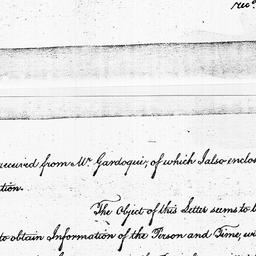 received from Mr. Gardoqui, of which I also enclos
tion.
The Object of this Letter seems to b
to obtain Information of the Person and Time, wi